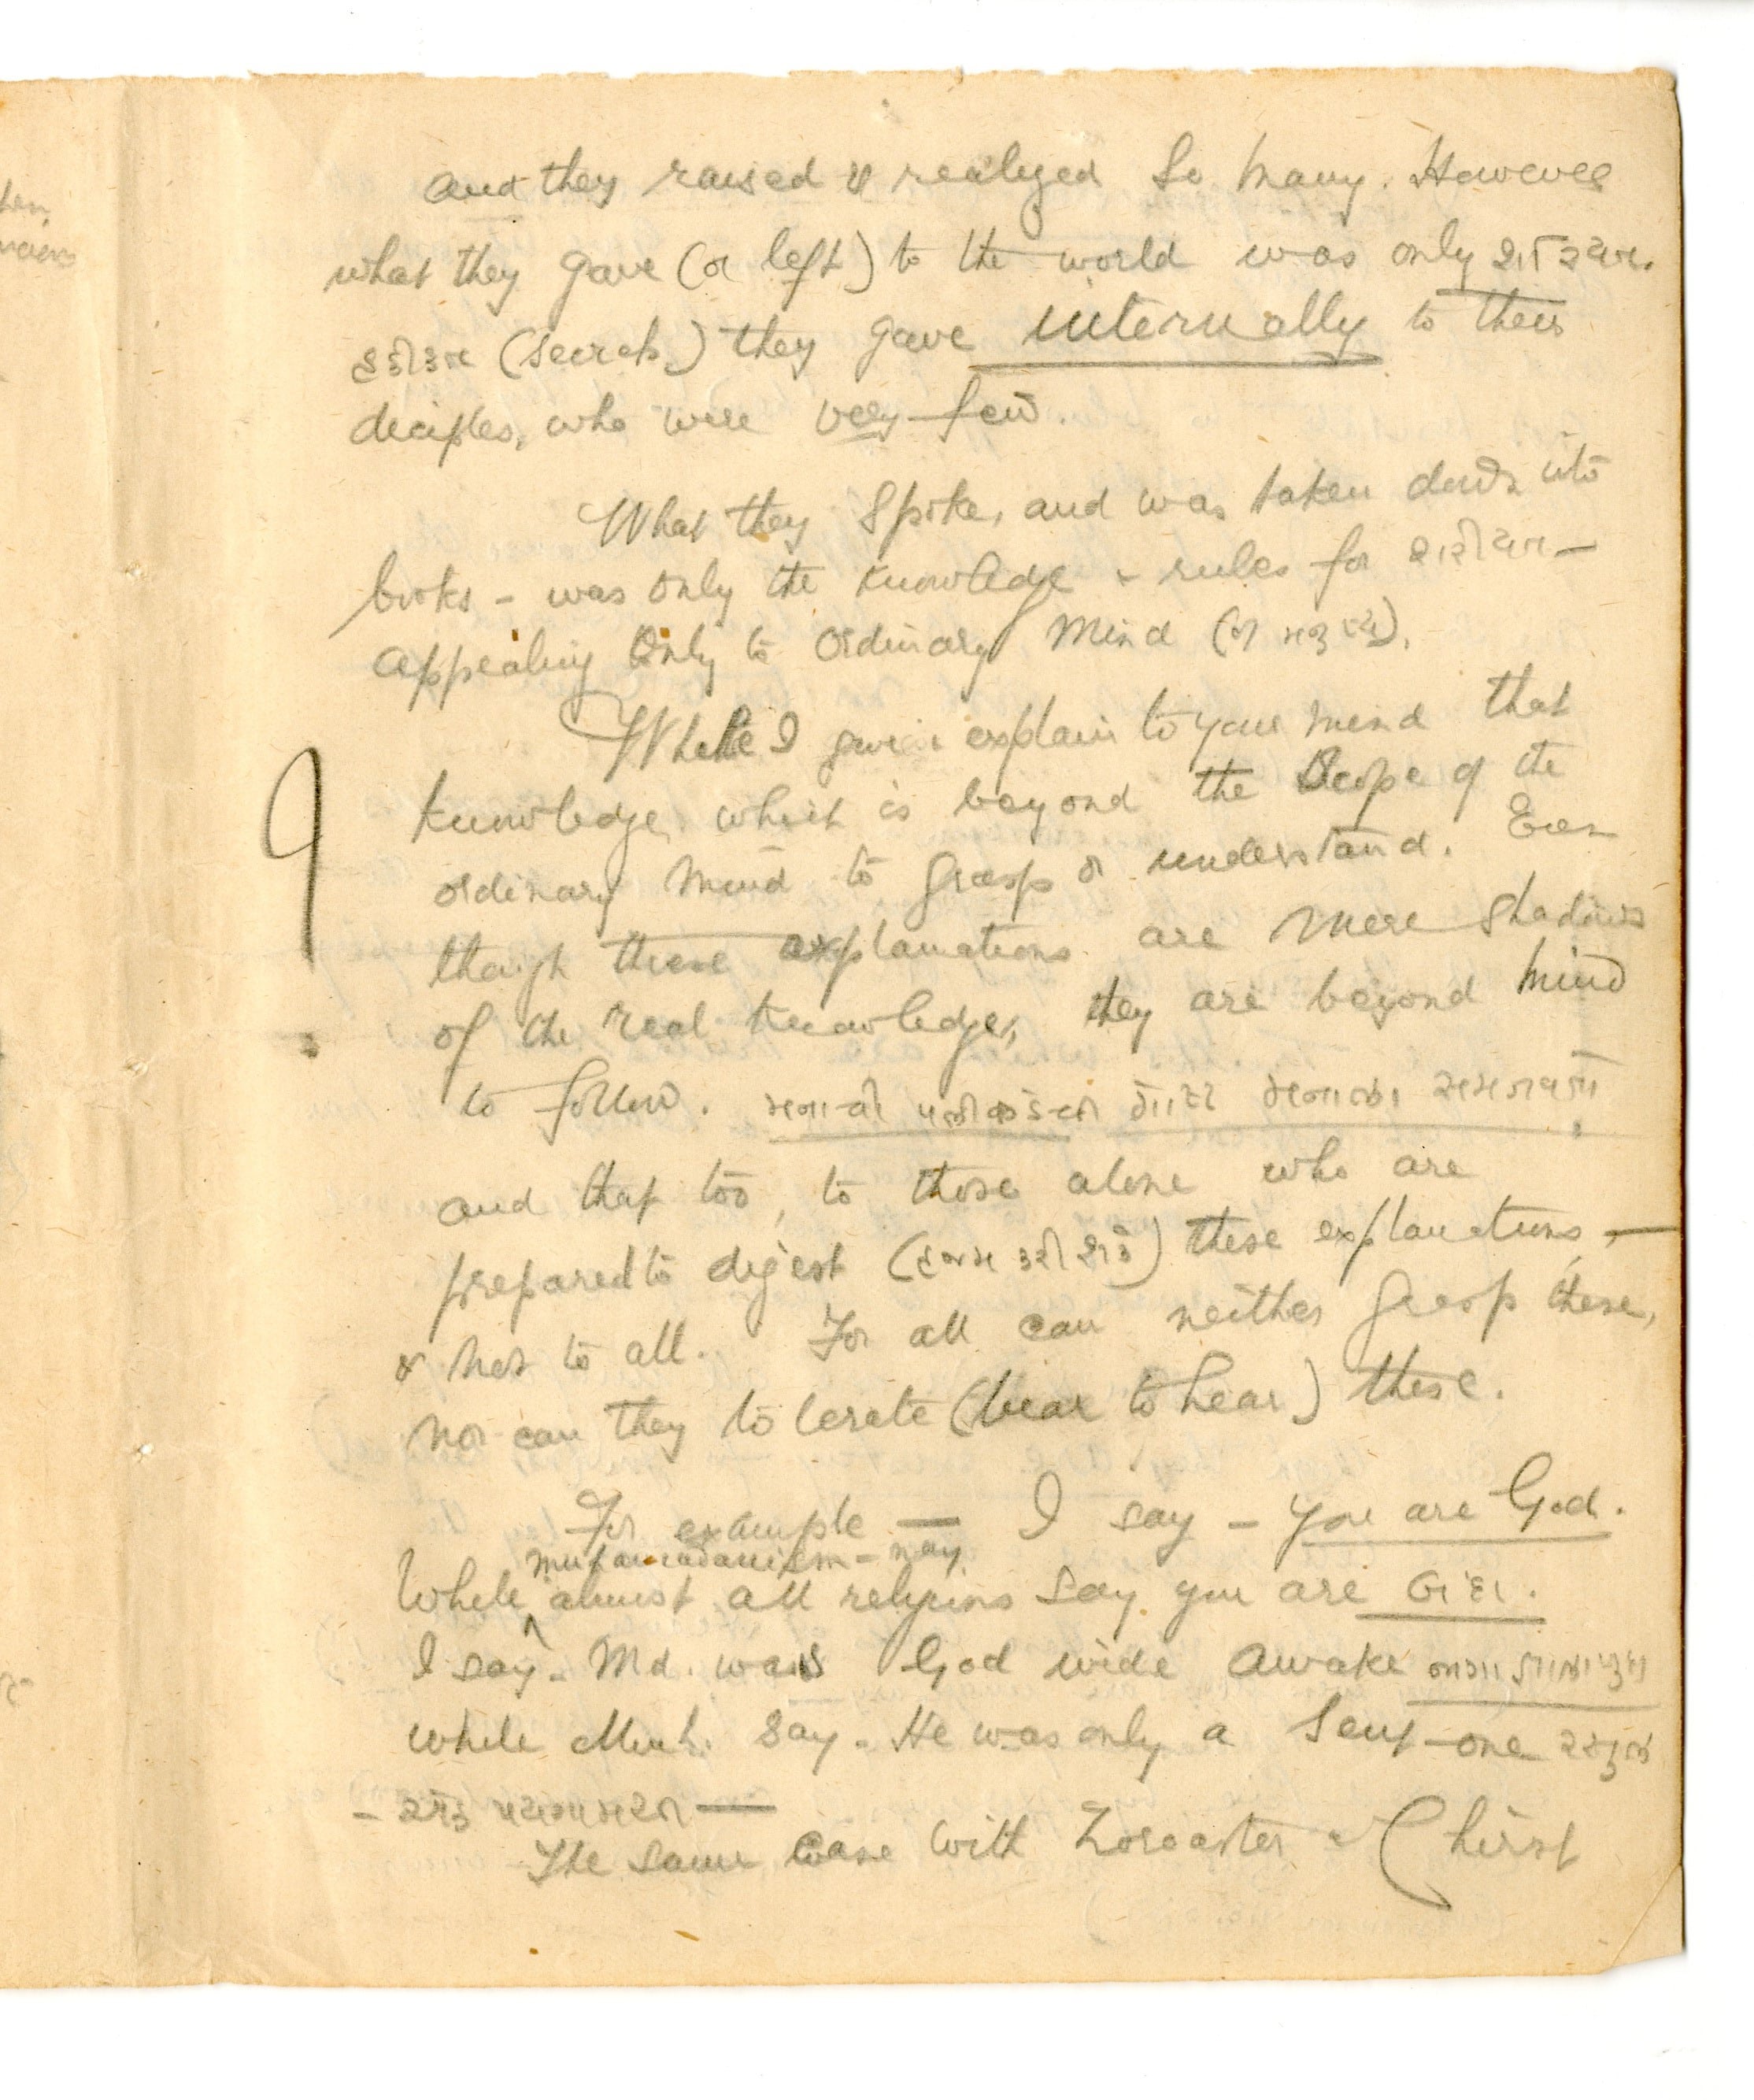 and they raised & realized so many. However
what they gave (or left) to the world was only શરીઅત.
હકીકત (secrets) they gave internally to their
deciples, who were very few.
What they spoke, and was taken down into
books - was only the knowledge & rules for શરીયત -
appealing only to ordinary mind (or
While I give & explain to your mind that
knowledge which is beyond the scope of the
ordinary mind to grasp or understand. Even
though these explanations are mere shadows
of the real knowledge, they are beyond mind
to follow.
and that too, to those alone who are
prepared to digest (હજમ કરી શકે) these explanations, —
& not to all. For all can neither grasp these,
nor can they tolerate (bear to hear) these.
For example — I say - you are God.
Muhamadanism - nay
While almost all religions say you are બંદા.
I say - Md. was God wide awake
while Muh. say - He was only a sent-one રસુલ
The same case with Zoroaster & Christ